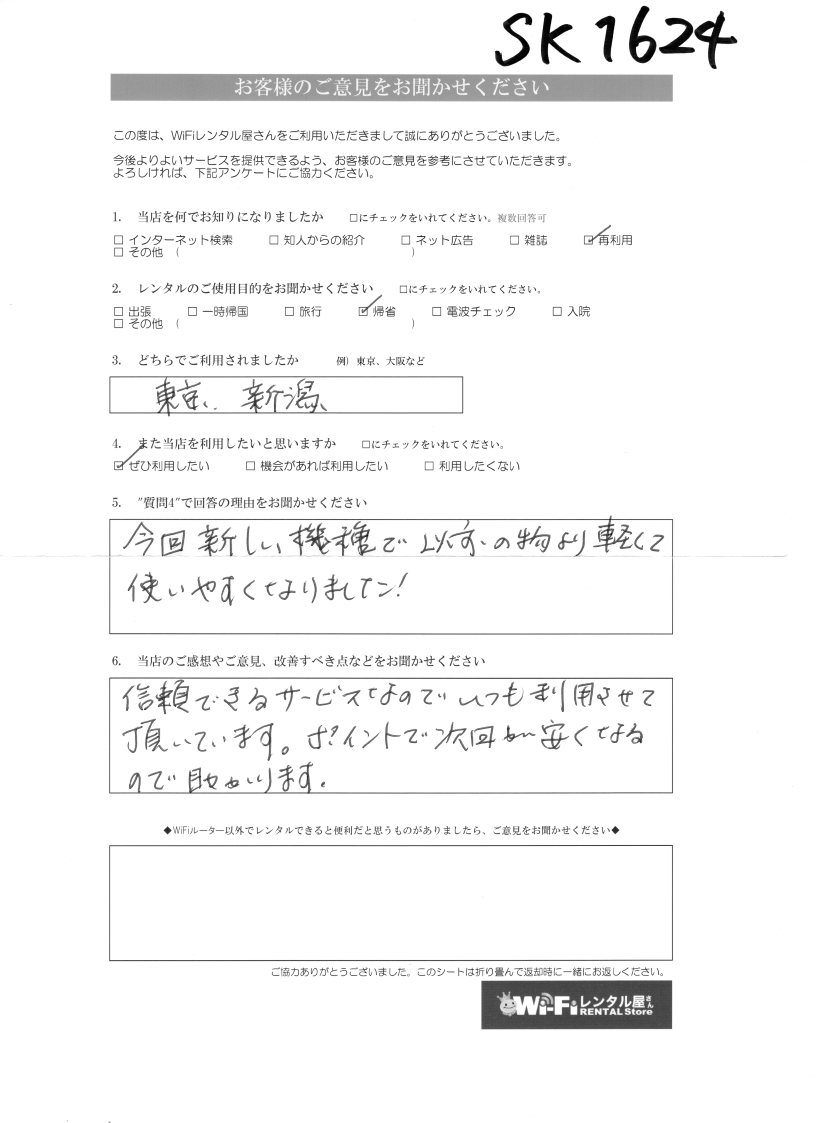 SK1624
お客様のご意見をお聞かせください
この度は、WiFiレンタル屋さんをご利用いただきまして誠にありがとうございました。
今後よりよいサービスを提供できるよう、お客様のご意見を参考にさせていただきます。
よろしければ、下記アンケートにご協力ください。
1. 当店を何でお知りになりましたか □にチェックをいれてください。複数回答可
□ インターネット検索 □ 知人からの紹介 □ ネット広告 □ 雑誌 ☑ 再利用
□ その他 ( )
2. レンタルのご使用目的をお聞かせください □にチェックをいれてください。
□ 出張 □ 一時帰国 □ 旅行 ☑ 帰省 □ 電波チェック □ 入院
□ その他 ( )
3. どちらでご利用されましたか 例）東京、大阪など
東京、新潟、
4. また当店を利用したいと思いますか □にチェックをいれてください。
☑ ぜひ利用したい □ 機会があれば利用したい □ 利用したくない
5. "質問4"で回答の理由をお聞かせください
今回新しい機種で以前の物より軽くて
使いやすくなりました!
6. 当店のご感想やご意見、改善すべき点などをお聞かせください
信頼できるサービスなのでいつも利用させて
頂いています。ポイントで次回が安くなる
ので助かります。
◆WiFiルーター以外でレンタルできると便利だと思うものがありましたら、ご意見をお聞かせください◆
ご協力ありがとうございました。このシートは折り畳んで返却時に一緒にお返しください。
Wi-Fiレンタル屋さん
RENTAL Store